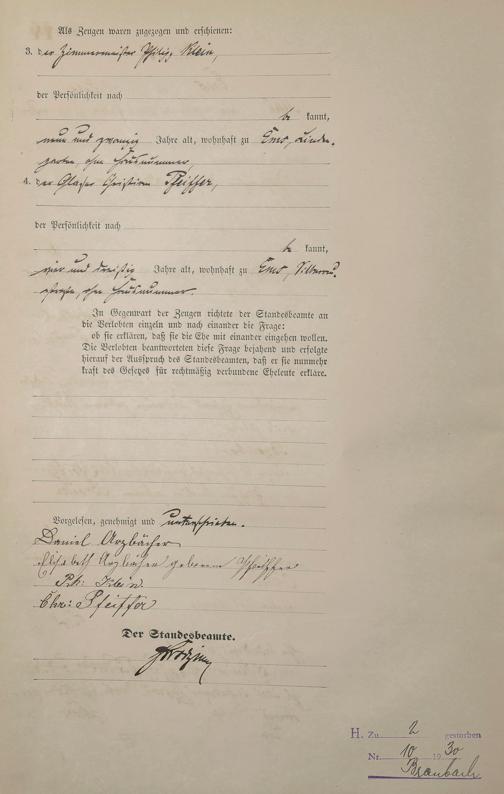 Als Zeugen waren zugezogen und erschienen:
3. der Zimmermeister Philipp Klein,
der Persönlichkeit nach
be kannt,
neun und zwanzig Jahre alt, wohnhaft zu Ems, Linden-
garten, ohne Hausnummer,
4. der Glaser Christian Pfeiffer,
der Persönlichkeit nach
be kannt,
vier und dreißig Jahre alt, wohnhaft zu Ems, Silberau
straße, ohne Hausnummer.
In Gegenwart der Zeugen richtete der Standesbeamte an
die Verlobten einzeln und nach einander die Frage:
ob sie erklären, daß sie die Ehe mit einander eingehen wollen.
Die Verlobten beantworteten diese Frage bejahend und erfolgte
hierauf der Ausspruch des Standesbeamten, daß er sie nunmehr
kraft des Gesetzes für rechtmäßig verbundene Eheleute erkläre.
Vorgelesen, genehmigt und unterschrieben.
Daniel Arzbächer
Elisabeth Arzbächer geborene Pfeiffer
Ph. Klein
Chr: Pfeiffer
Der Standesbeamte.
H. Zu 2 gestorben
Nr. 10 1930
Braubach